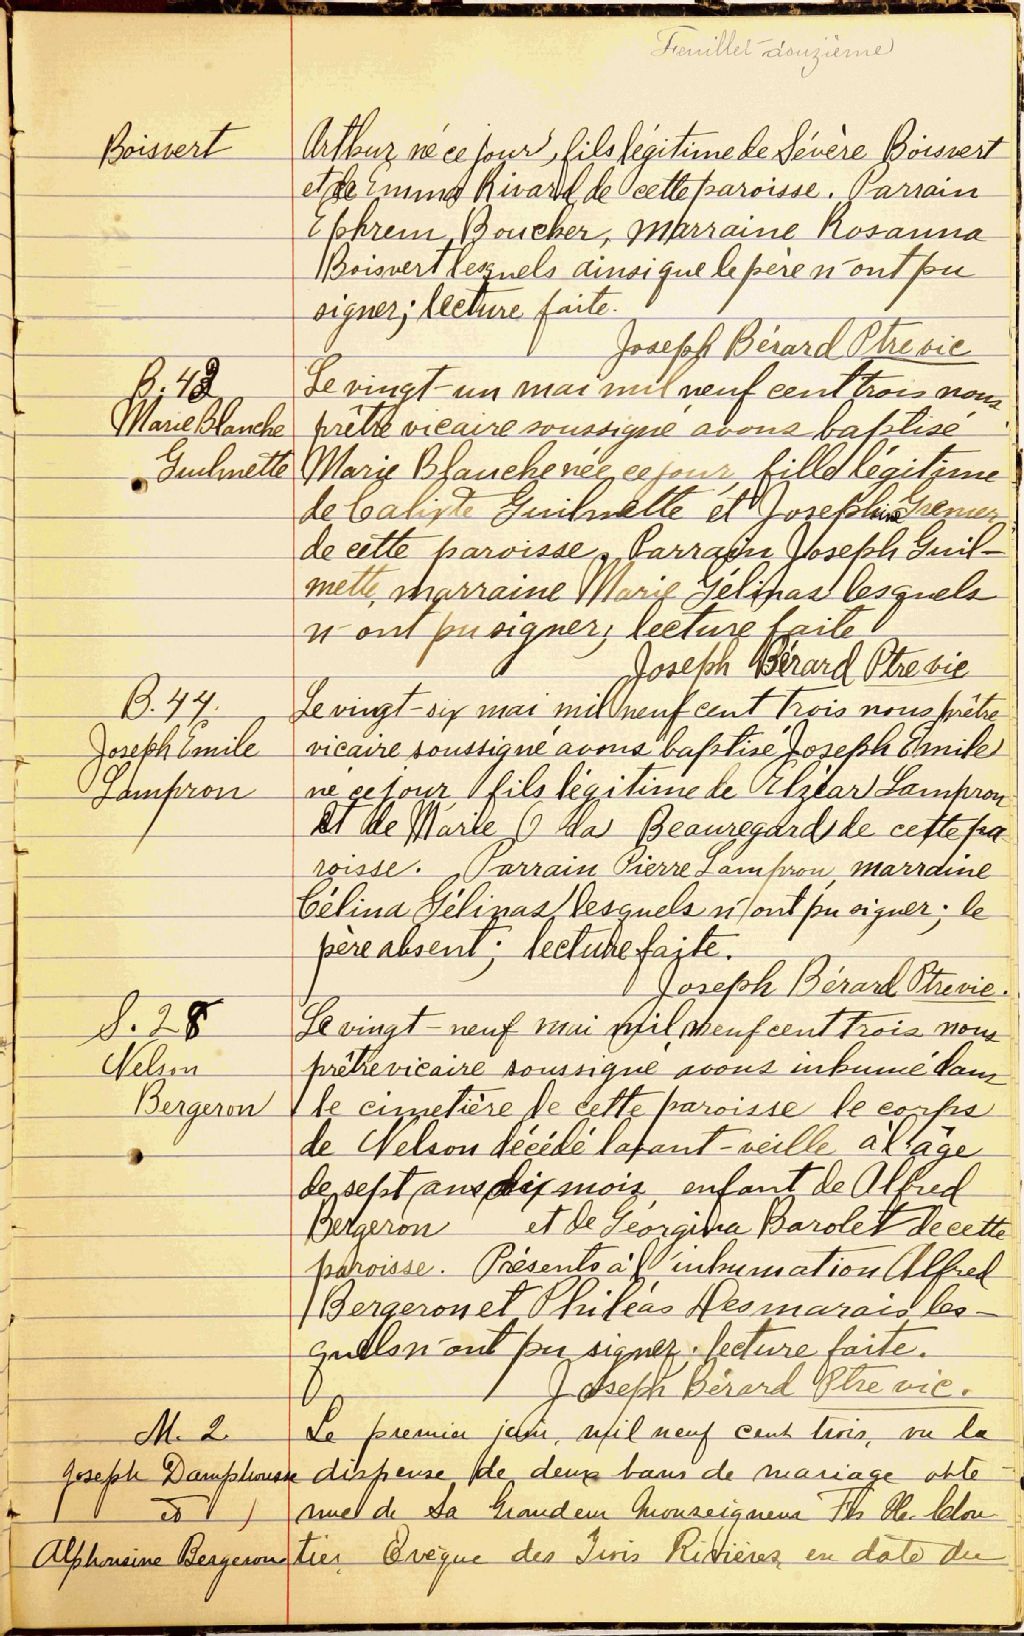 Feuillet douzième
Boisvert
Arthur né ce jour, fils légitime de Sévère Boisvert
et de Emma Rivard de cette paroisse. Parrain
Ephrem Boucher, marraine Rosanna
Boisvert lesquels ainsi que le père n'ont pu
signer; lecture faite.
Joseph Bérard Ptre vic
B. 43
Marie Blanche
Guilmette
Le vingt-un mai mil neuf cent trois nous
prêtre vicaire soussigné avons baptisé
Marie Blanche née ce jour, fille légitime
de Calixte Guilmette et Josephine Grenier
de cette paroisse. Parrain Joseph Guil-
mette, marraine Marie Gélinas lesquels
n'ont pu signer; lecture faite
Joseph Bérard Ptre vic
B. 44.
Joseph Emile
Lampron
Le vingt-six mai mil neuf cent trois nous prêtre
vicaire soussigné avons baptisé Joseph Emile
né ce jour fils légitime de Elzéar Lampron
et de Marie Oda Beauregard de cette pa
roisse. Parrain Pierre Lampron, marraine
Célina Gélinas lesquels n'ont pu signer; le
père absent; lecture faite.
Joseph Bérard Ptre vic.
S. 28
Nelson
Bergeron
Le vingt-neuf mai mil neuf cent trois nous
prêtre vicaire soussigné avons inhumé dans
le cimetière de cette paroisse le corps
de Nelson décédé lavant-veille à l'âge
de sept ans dix mois, enfant de Alfred
Bergeron et de Géorgina Barolet de cette
paroisse. Présents à l'inhumation Alfred
Bergeron et Philéas Desmarais les-
quels n'ont pu signer; lecture faite.
Joseph Bérard Ptre vic.
M. 2
Joseph Damphousse
&
Alphonsine Bergeron
Le premier juin, mil neuf cent trois, vu la
dispense de deux bans de mariage obte-
nue de Sa Grandeur Monseigneur Frs Xr. Clou-
tier, Evêque des Trois Rivières, en date du